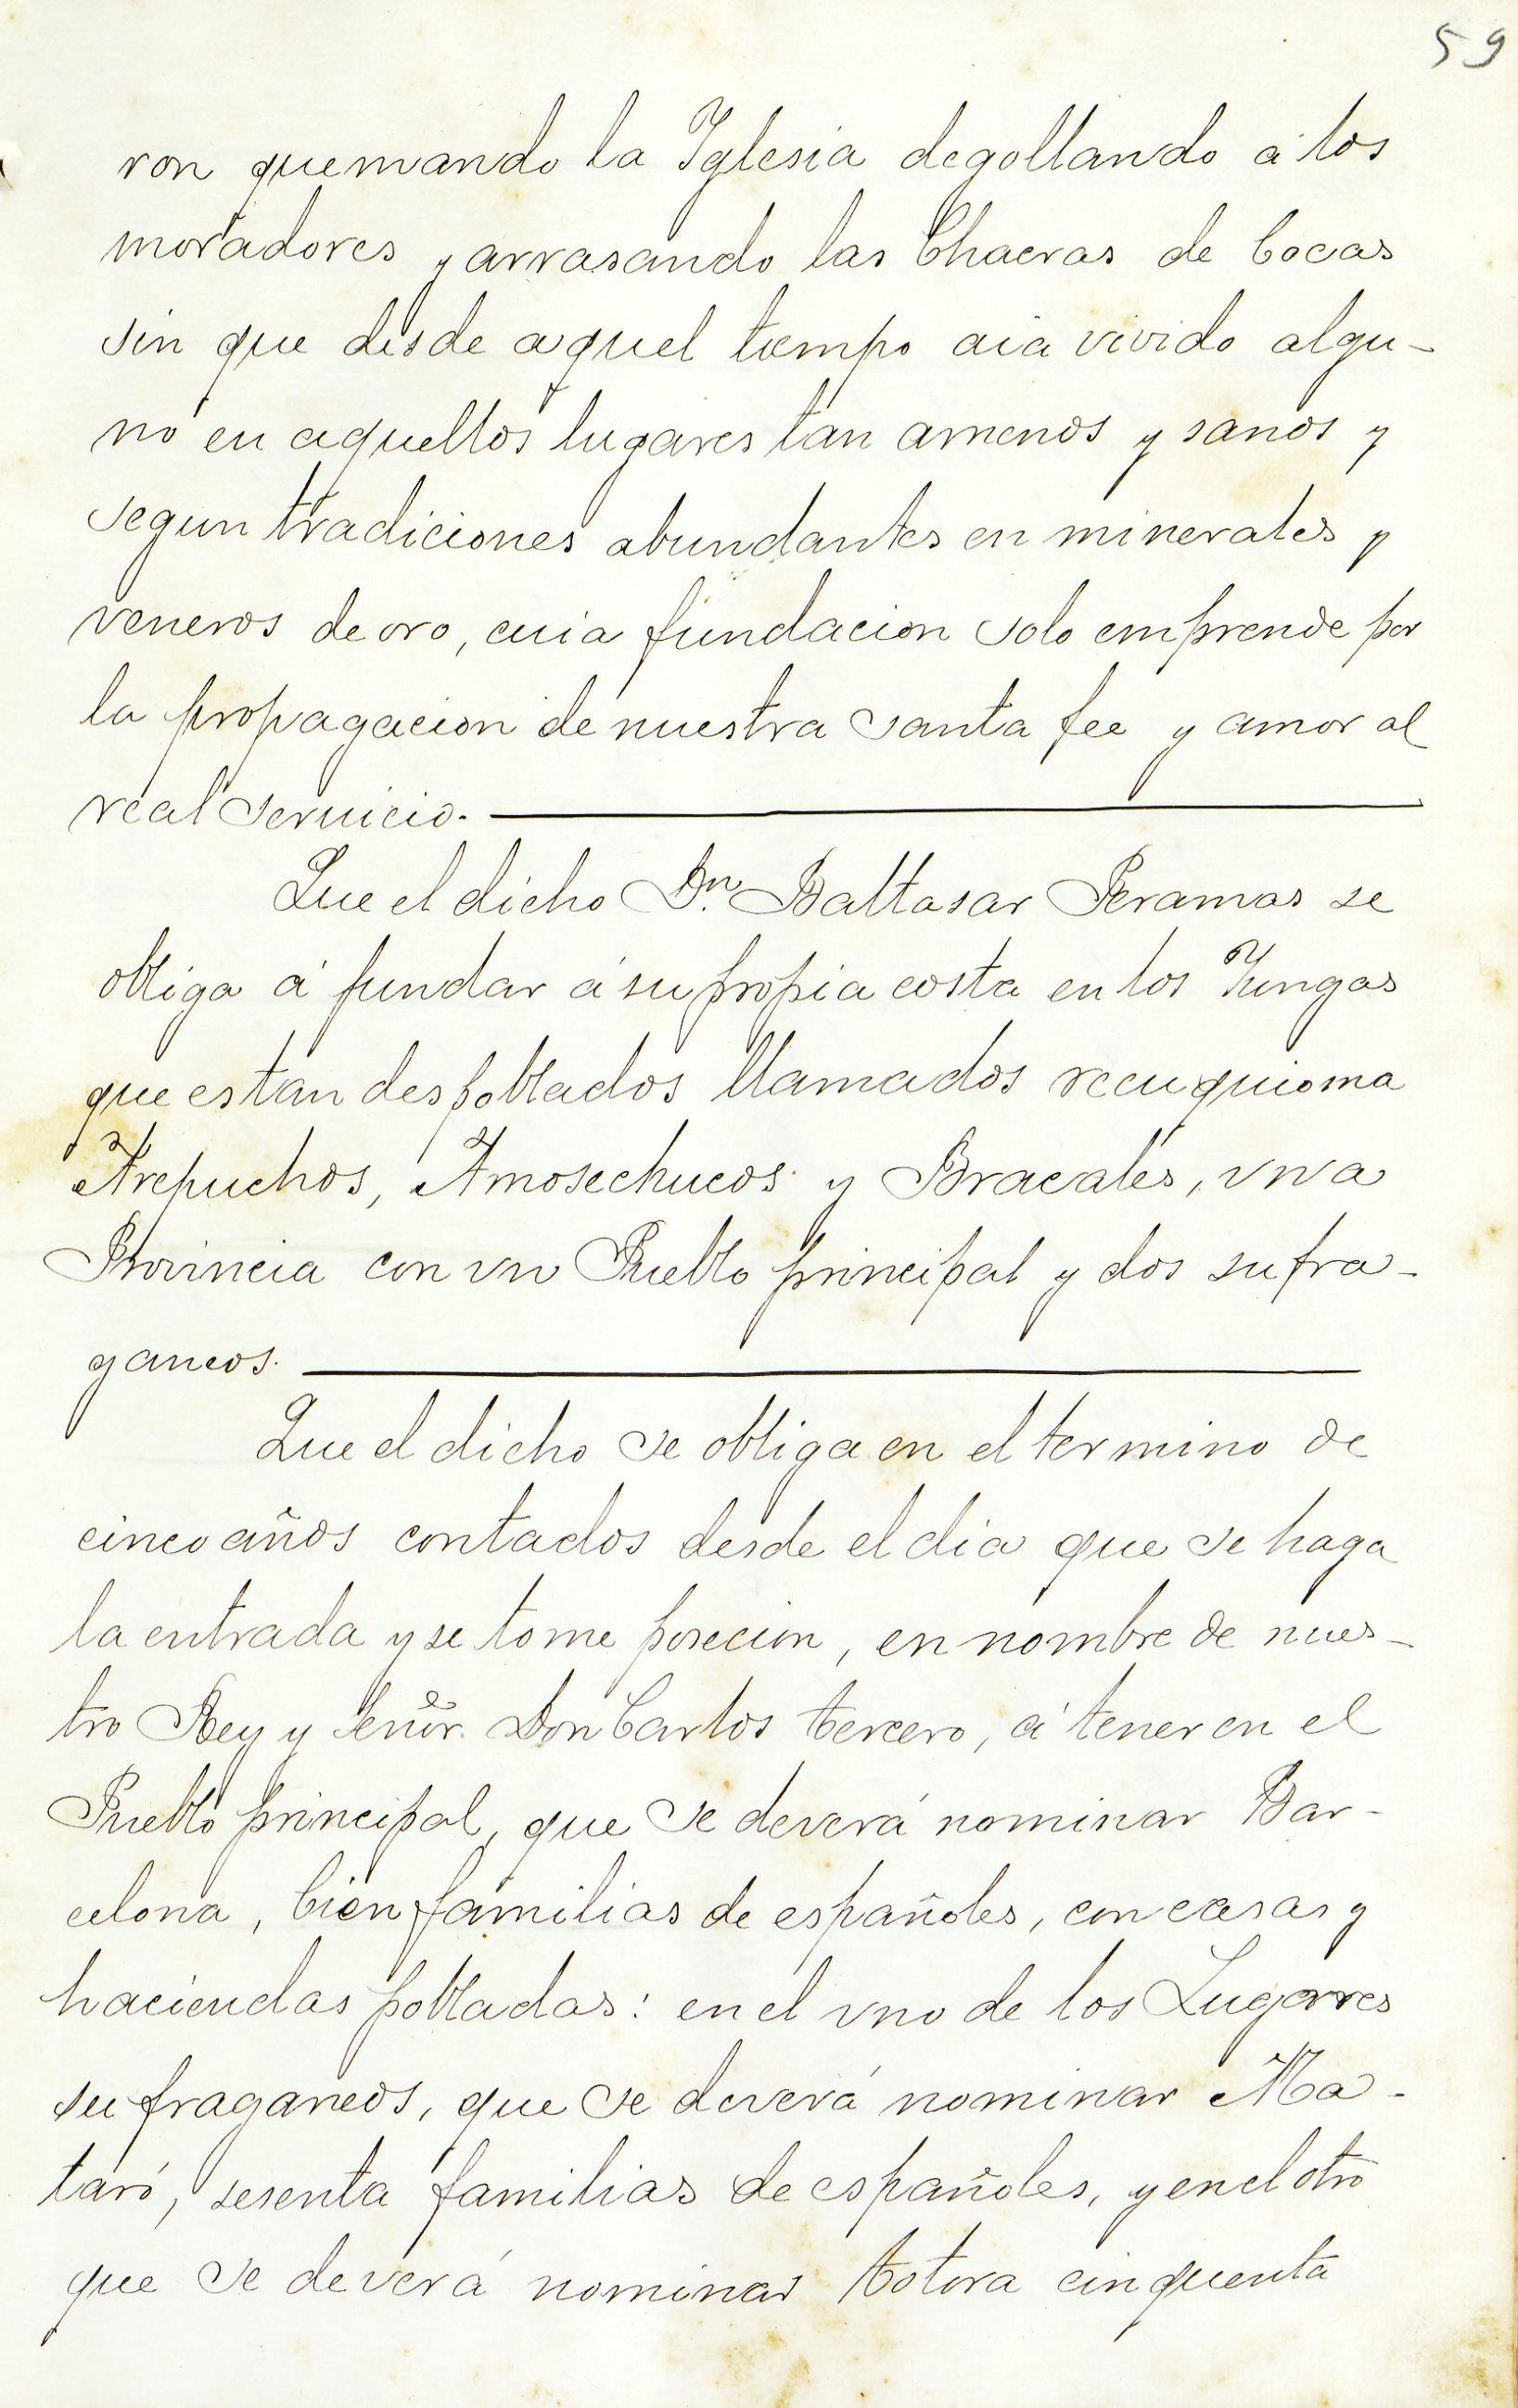 59
ron quemando la Yglesia degollando á los
moradores y arrasando las Chacras de Cocas
sin que desde aquel tiempo aia vivido algu-
no en aquellos lugares tan amenos y sanos y
segun tradiciones abundantes en minerales y
veneros de oro, cuia fundacion solo emprende por
la propagacion de nuestra santa fee y amor al
real seruicio.
Que el dicho Dn. Baltasar Peramas se
obliga á fundar á su propia costa en los Yungas
que estan despoblados llamados recuquioma
Arepuchos, Amosechucos y Bracales, vna
Provincia con vn Pueblo principal y dos sufra-
ganeos.
Que el dicho se obliga en el termino de
cinco años contados desde el dia que se haga
la entrada y se tome posecion, en nombre de nues-
tro Rey y señor Don Carlos tercero, á tener en el
Pueblo principal, que se deverá nominar Bar-
celona, Cien familias de españoles, con casas y
haciendas pobladas: en el vno de los Lugares
sufraganeos, que se deverá nominar Ma-
taró, sesenta familias de españoles, y en el otro
que se deverá nominar totora cinquenta